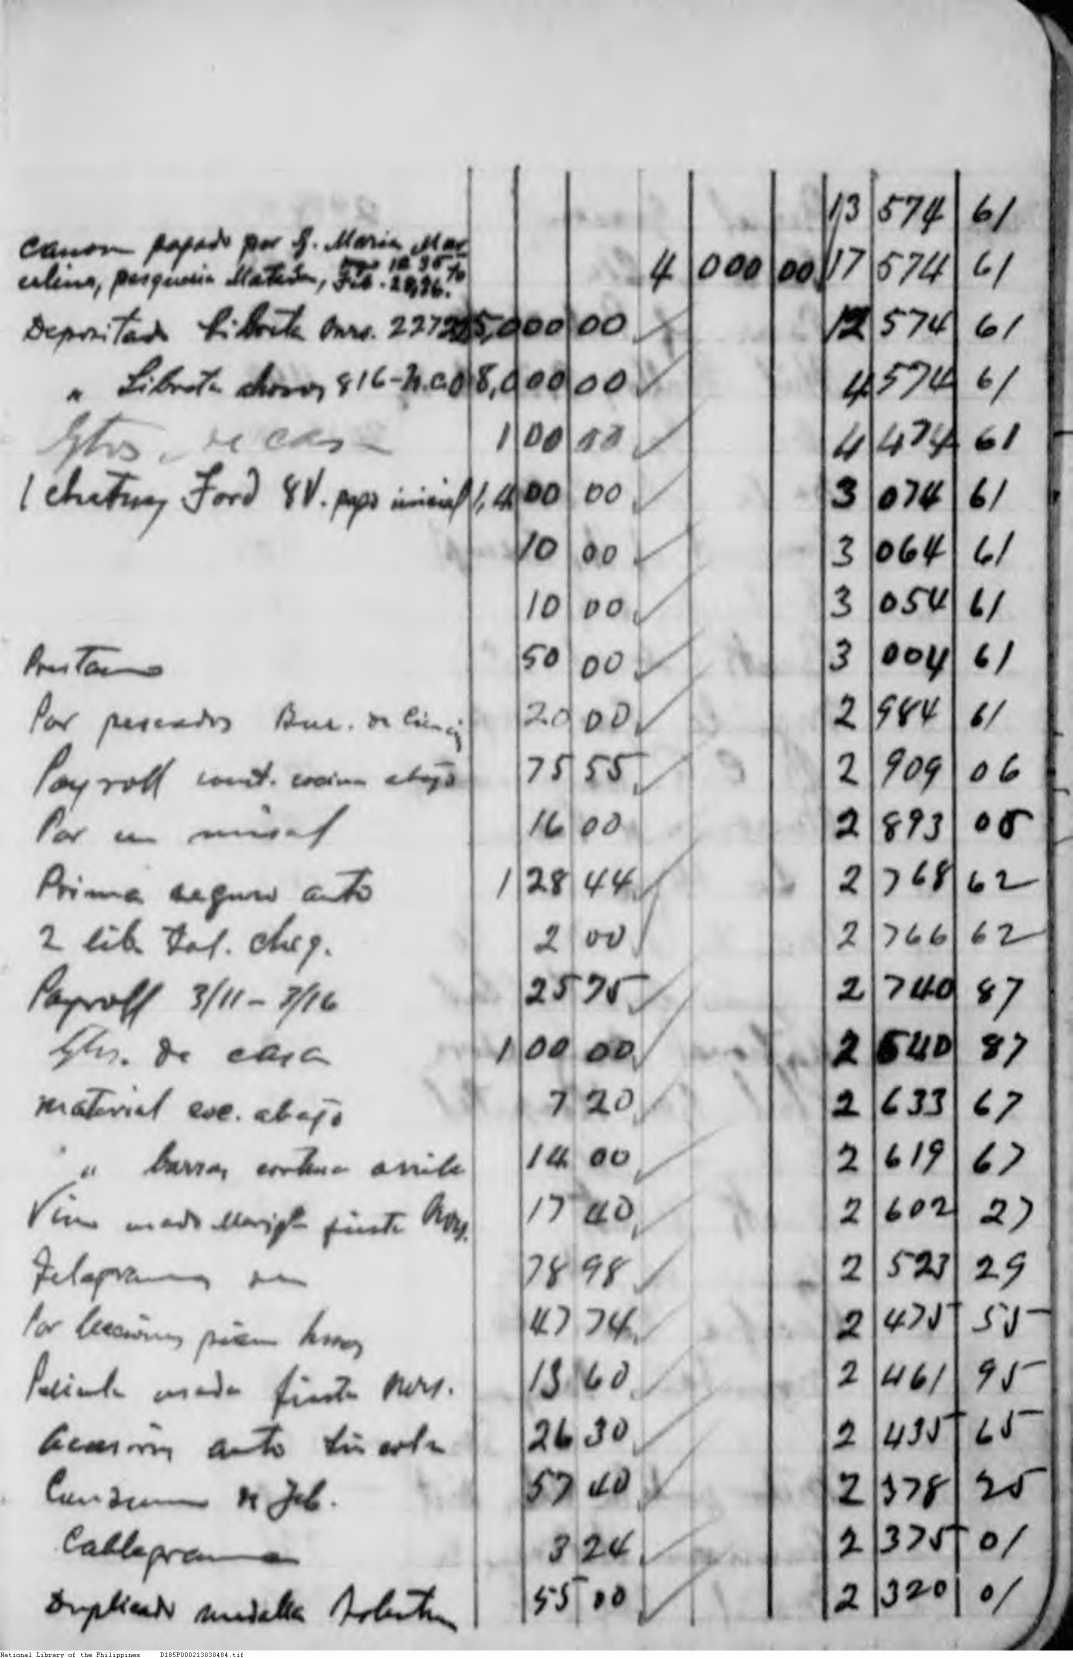 13 574 61
Canon pagado por G. Maria Mar-
celino, pesqueria Feb. 28, 36. 4 000 00 17 574 61
Depositado Libreta 5,000 00 12 574 61
" Libreta 816-N.C.O 8,000 00 4 574 61
Gtos. de casa 1 00 00 4 474 61
1 Ford 8V. pago inicial 1,400 00 3 074 61
10 00 3 064 61
10 00 3 054 61
Prestamo 50 00 3 004 61
Por pescados Bur. de 20 00 2 984 61
Payroll cocina abajo 75 55 2 909 06
Por un misal 16 00 2 893 06
Prima seguro auto 1 28 44 2 768 62
2 lib. Tal. cheq. 2 00 2 766 62
Payroll 3/11 - 3/16 25 75 2 740 87
Gtos. de casa 1 00 00 2 640 87
Material coc. abajo 7 20 2 633 67
" barras 14 00 2 619 67
Vino usado fiesta 17 40 2 602 27
Telegramas 78 98 2 523 29
Por lecciones piano 47 74 2 475 55
Pelicula usada fiesta 13 60 2 461 95
Accesorios auto Lincoln 26 30 2 435 65
Consumo de Feb. 57 40 2 378 25
Cablegrama 3 24 2 375 01
Duplicado medalla 55 00 2 320 01
National Library of the Philippines D185P000213030484.tif